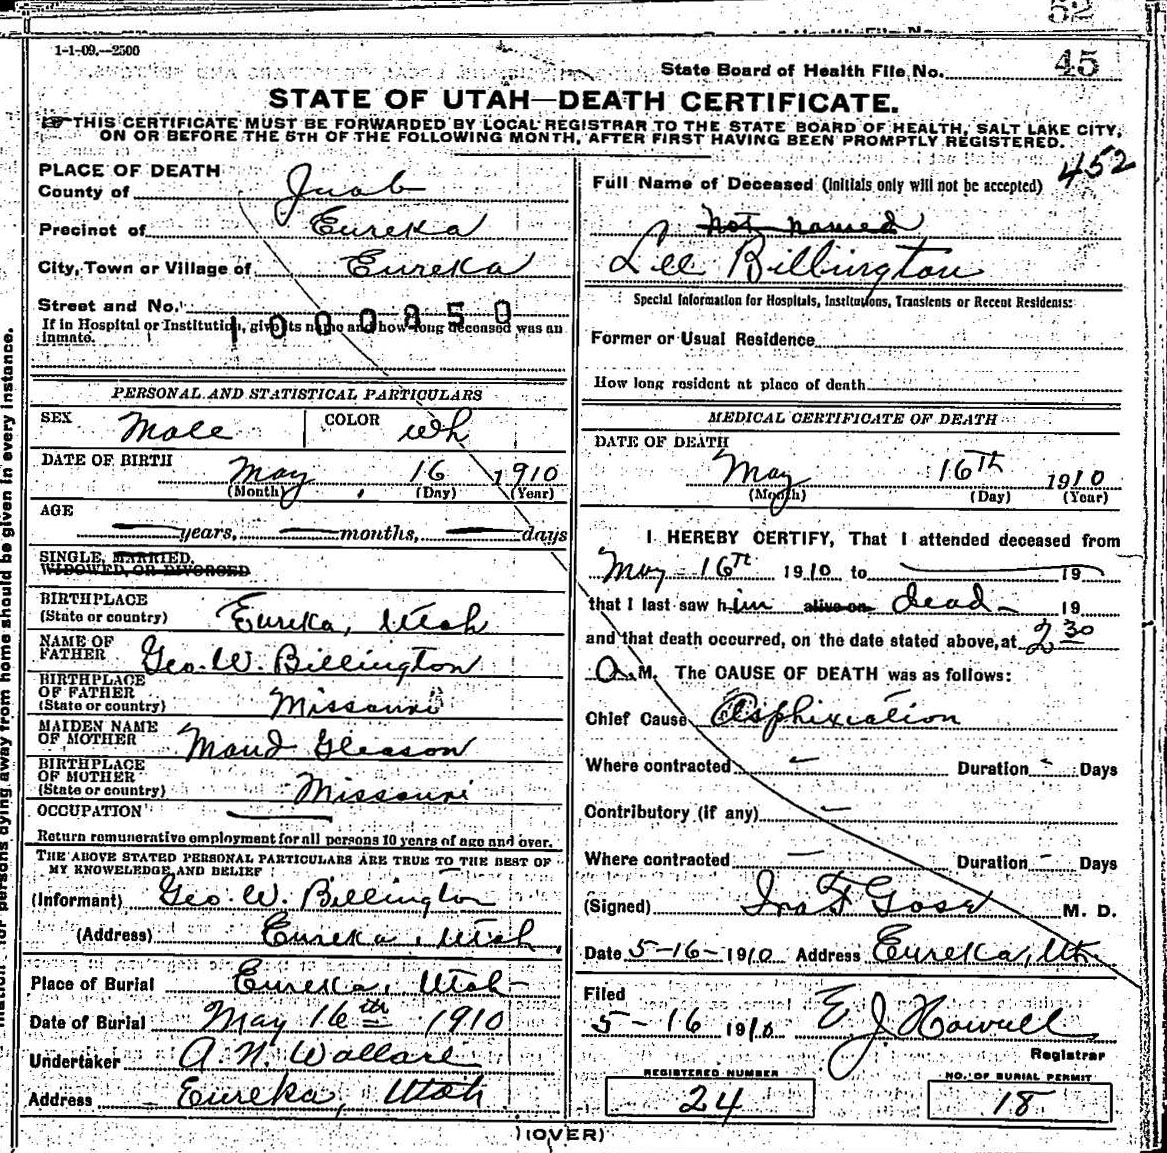 52
1-1-09.—2500
State Board of Health File No. 45
STATE OF UTAH—DEATH CERTIFICATE.
THIS CERTIFICATE MUST BE FORWARDED BY LOCAL REGISTRAR TO THE STATE BOARD OF HEALTH, SALT LAKE CITY,
ON OR BEFORE THE 5TH OF THE FOLLOWING MONTH, AFTER FIRST HAVING BEEN PROMPTLY REGISTERED.
PLACE OF DEATH
County of Juab
Precinct of Eureka
City, Town or Village of Eureka
Street and No.
1000850
If in Hospital or Institution, give its name and how long deceased was an
inmate.
PERSONAL AND STATISTICAL PARTICULARS
SEX Male COLOR Wh
DATE OF BIRTH
May 16 1910
(Month) (Day) (Year)
AGE
years, months, days
SINGLE, MARRIED,
WIDOWED, OR DIVORCED
BIRTHPLACE
(State or country) Eureka, Utah
NAME OF
FATHER Geo. W. Billington
BIRTHPLACE
OF FATHER
(State or country) Missouri
MAIDEN NAME
OF MOTHER Maud Gleason
BIRTHPLACE
OF MOTHER
(State or country) Missouri
OCCUPATION
Return remunerative employment for all persons 10 years of age and over.
THE ABOVE STATED PERSONAL PARTICULARS ARE TRUE TO THE BEST OF
MY KNOWLEDGE AND BELIEF
(Informant) Geo. W. Billington
(Address) Eureka, Utah
Place of Burial Eureka, Utah
Date of Burial May 16th 1910
Undertaker A. N. Wallace
Address Eureka, Utah
452
Full Name of Deceased (Initials only will not be accepted)
not named
Lee Billington
Special Information for Hospitals, Institutions, Transients or Recent Residents:
Former or Usual Residence
How long resident at place of death
MEDICAL CERTIFICATE OF DEATH
DATE OF DEATH
May 16th 1910
(Month) (Day) (Year)
I HEREBY CERTIFY, That I attended deceased from
May 16th 1910 to 19
that I last saw him alive on dead 19
and that death occurred, on the date stated above, at 2 30
A.M. The CAUSE OF DEATH was as follows:
Chief Cause Asphixiation
Where contracted - Duration - Days
Contributory (if any) -
Where contracted - Duration - Days
(Signed) Ira F Gose M. D.
Date 5-16-1910 Address Eureka, Ut.
Filed
5-16 1910 E J Howell
Registrar
REGISTERED NUMBER
24
NO. OF BURIAL PERMIT
18
(OVER)